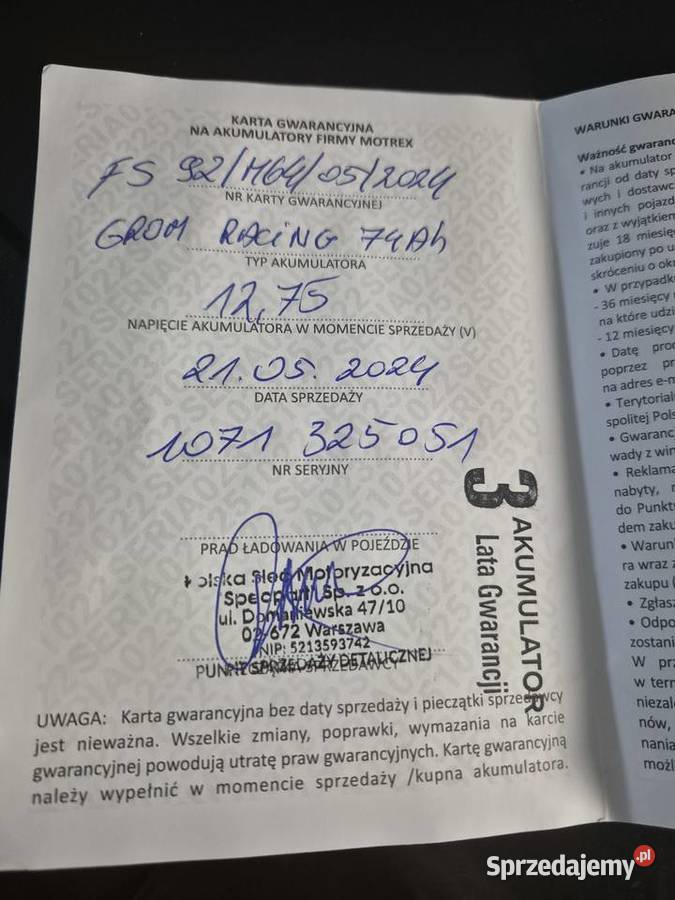 KARTA GWARANCYJNA
NA AKUMULATORY FIRMY MOTREX
FS 92/M64/05/2024
NR KARTY GWARANCYJNEJ
GROM RACING 74Ah
TYP AKUMULATORA
12,75
NAPIĘCIE AKUMULATORA W MOMENCIE SPRZEDAŻY (V)
21.05.2024
DATA SPRZEDAŻY
1071 325051
NR SERYJNY
PRĄD ŁADOWANIA W POJEŹDZIE
Polska Sieć Motoryzacyjna
Specpart Sp. z o.o.
ul. Domaniewska 47/10
02-672 Warszawa
NIP: 5213593742
PUNKT SPRZEDAŻY DETALICZNEJ
SPRZEDAWCY
3 AKUMULATOR
Lata Gwarancji
UWAGA: Karta gwarancyjna bez daty sprzedaży i pieczątki sprzedawcy
jest nieważna. Wszelkie zmiany, poprawki, wymazania na karcie
gwarancyjnej powodują utratę praw gwarancyjnych. Kartę gwarancyjną
należy wypełnić w momencie sprzedaży /kupna akumulatora.
WARUNKI GWARA
Ważność gwaranc
• Na akumulator
rancji od daty sp
wych i dostawc
i innych pojazd
oraz z wyjątkiem
zuje 18 miesięc
zakupiony po u
skróceniu o ok
• W przypadku
- 36 miesięcy
na które udzi
- 12 miesięcy
• Datę proc
poprzez pr
na adres e-m
• Terytorial
spolitej Pols
• Gwaranc
wady z win
• Reklama
nabyty, r
do Punktu
dem zaku
• Warun
ra wraz z
zakupu (
• Zgłasz
• Odpo
zostani
W prz
w term
niezale
nów,
nania
możl
Sprzedajemy.pl